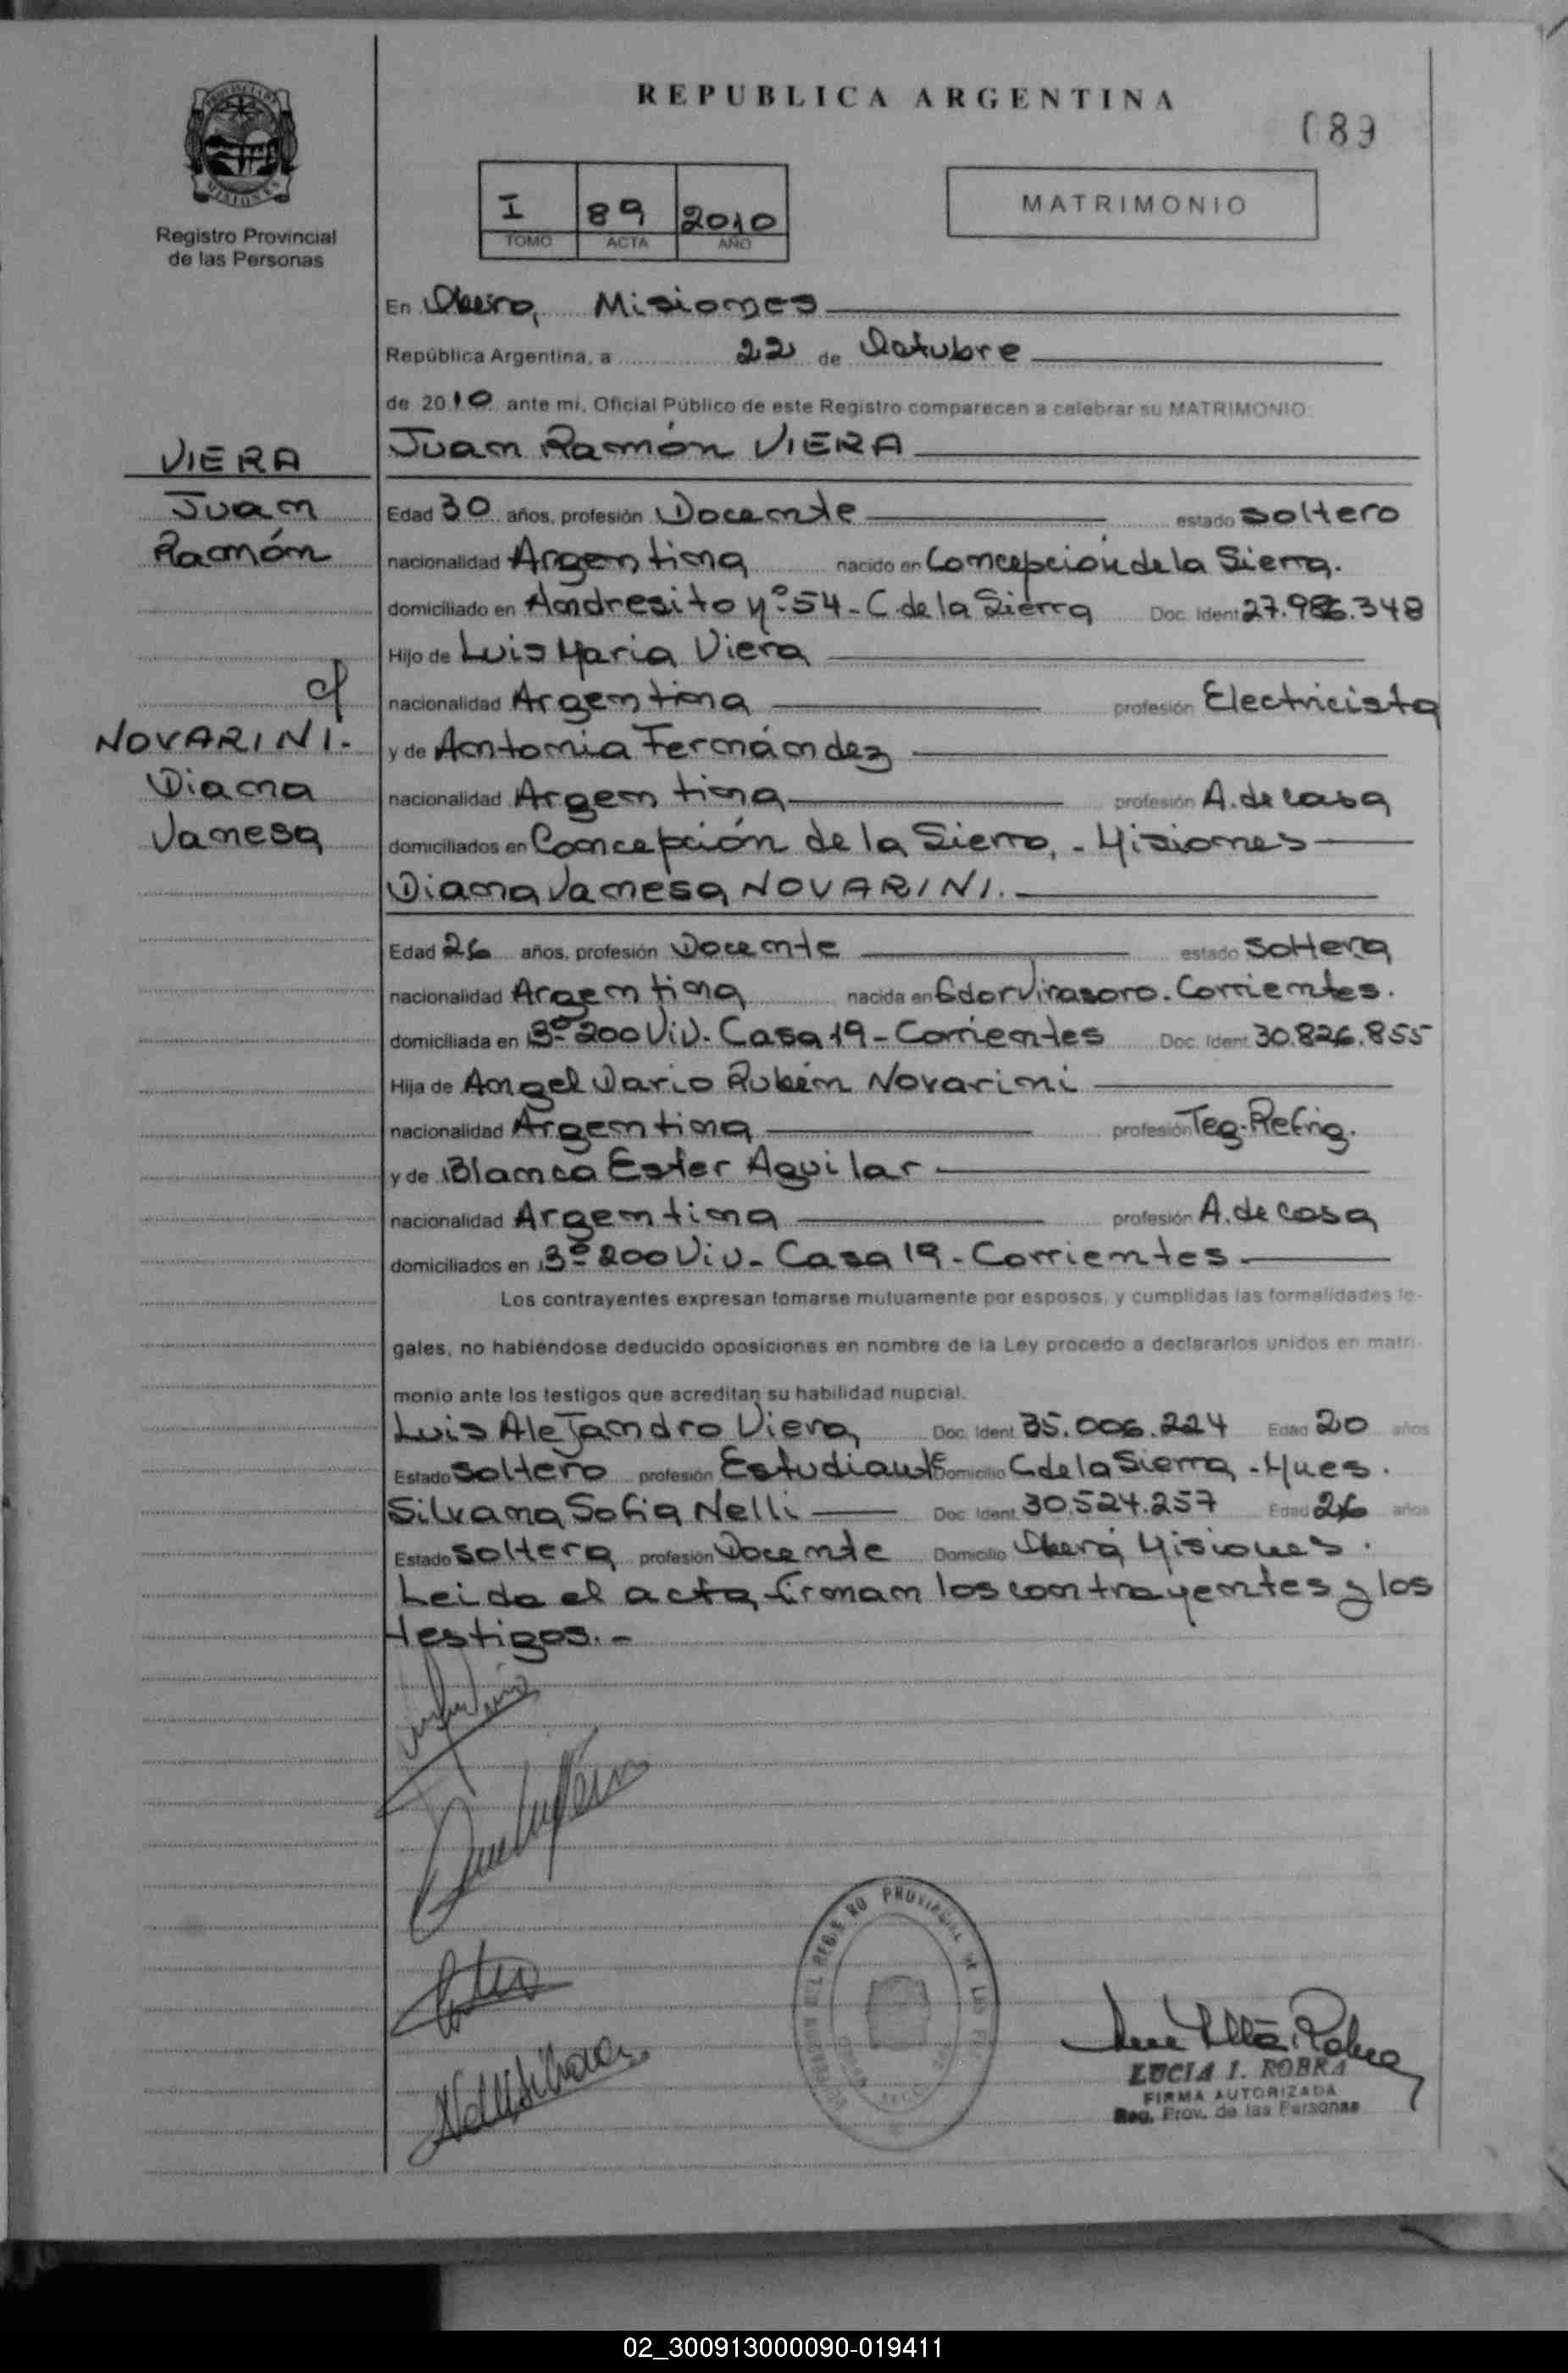 REPUBLICA ARGENTINA
089
PROVINCIA DE
MISIONES
Registro Provincial
de las Personas
I 89 2010
TOMO ACTA AÑO
MATRIMONIO
En Oberá, Misiones
República Argentina, a 22 de Octubre
de 2010 ante mi, Oficial Público de este Registro comparecen a celebrar su MATRIMONIO:
VIERA
Juan
Ramón
c/
NOVARINI.-
Diana
Vanesa
Juan Ramón VIERA
Edad 30 años, profesión Docente estado soltero
nacionalidad Argentina nacido en Concepción de la Sierra.
domiciliado en Andresito nº 54 - C. de la Sierra Doc. Ident 27.986.348
Hijo de Luis Maria Viera
nacionalidad Argentina profesión Electricista
y de Antonia Fernández
nacionalidad Argentina profesión A. de casa
domiciliados en Concepción de la Sierra, - Misiones
Diana Vanesa NOVARINI.
Edad 26 años, profesión Docente estado soltera
nacionalidad Argentina nacida en Gdor Virasoro. Corrientes.
domiciliada en Bº 200 Viv. Casa 19 - Corrientes Doc. Ident. 30.826.855
Hija de Angel Dario Rubén Novarini
nacionalidad Argentina profesión Teg. Refrig.
y de Blanca Ester Aguilar
nacionalidad Argentina profesión A. de casa
domiciliados en Bº 200 Viv. - Casa 19 - Corrientes
Los contrayentes expresan tomarse mutuamente por esposos, y cumplidas las formalidades le-
gales, no habiéndose deducido oposiciones en nombre de la Ley procedo a declararlos unidos en matri-
monio ante los testigos que acreditan su habilidad nupcial.
Luis Alejandro Viera Doc. Ident. 35.006.224 Edad 20 años
Estado soltero profesión Estudiante Domicilio C. de la Sierra - Mnes.
Silvana Sofia Nelli Doc. Ident. 30.524.257 Edad 26 años
Estado soltera profesión Docente Domicilio Oberá Misiones.
Leida el acta, firman los contrayentes y los
testigos. -
LUCIA I. ROBRA
FIRMA AUTORIZADA
Reg. Prov. de las Personas
02_300913000090-019411